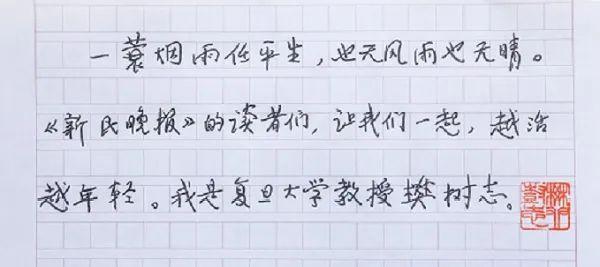 一蓑烟雨任平生，也无风雨也无晴。
《新民晚报》的读者们，让我们一起，越活
越年轻。我是复旦大学教授樊树志。
樊树志